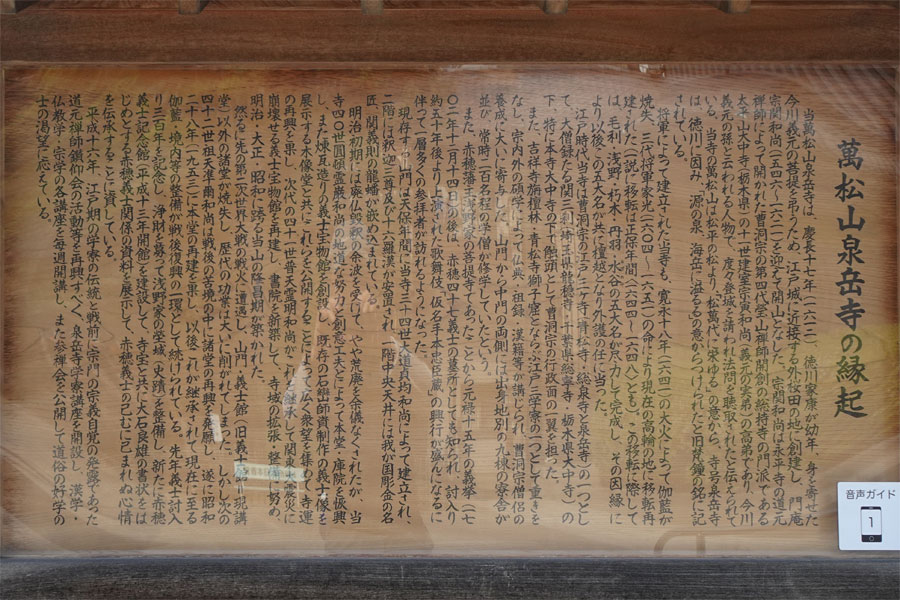 萬松山泉岳寺の縁起
当萬松山泉岳寺は、慶長十七年（一六一二）徳川家康が幼年、身を寄せた
今川義元の菩提を弔うため、江戸城に近接する外桜田の地に創建し、門庵
宗関和尚（一五四六〜一六二一）を迎えて開山となした。
禅師によって開かれた曹洞宗の第四代瑩山禅師開創の總持寺の門派である
義元の孫と云われる人物で、度々登城を請われ法問を聴取されたと伝えられて
いる。当寺の萬松山は松平の松より、松萬代に栄ゆるの意から、寺号泉岳寺
は、徳川に因み、源の泉、海岳に溢るるの意からつけられたと旧梵鐘の銘に記
されている。
将軍によって建立された当寺も、寛永十八年（一六四一）の大火によって伽藍が
焼失、三代将軍家光（一六〇四〜一六五一）の命により現在の高輪の地に移転再
建された（一説に移転は正保年間（一六四四〜一六四八）とも）。この移転に際して
は、毛利・浅野・朽木・丹羽・水谷の五大名が尽力して完成し、その因縁に
より以後、この五大名が共に檀越となり外護の任に当った。
江戸時代当寺は曹洞宗の江戸三ケ寺（江戸青松寺・総泉寺と泉岳寺）の一つとし
て、大僧録たる関三刹（埼玉県龍穏寺・千葉県総寧寺・栃木県大中寺）の
下、特に本寺大中寺の下で触頭として曹洞宗の行政面の一翼を担った。
また、吉祥寺旃檀林・青松寺獅子窟とならぶ江戸三学寮の一つとして重きを
なし、宗内外の碩学によって仏典・祖録・漢籍等が講じられ、曹洞宗僧侶の
養成に大いに寄与した。山門から中門の両側には出身地別の九棟の寮舎が
並び、常時二百名程の学僧が修学していたという。
また、赤穂藩主浅野家の江戸菩提寺であったことから元禄十五年の義挙（一七
〇二年十二月十四日）の後は、赤穂四十七義士の墓所としても知られ、討入り
約五十年後より催された歌舞伎、仮名手本忠臣蔵の興行が盛んになるに
伴って一層多くの参拝者が訪れるようになった。
現存する山門は天保年間に当寺三十四世大道貞均和尚によって建立され、
二階には釈迦三尊及び十六羅漢が安置され、一階中央天井には我が国彫金の名
匠、関義則の龍蟠が嵌め込まれている。
明治初期は廃仏毀釈の余波を受けて、やや荒廃を余儀なくされたが、当
寺四〇世
展示する木像堂と共に
の再興を果し、
明治、大正、昭和に跨る当山の隆昌期が築かれた。
然るに先の第二次世界大戦の戦火に遭遇し、山門、義士館（旧義士館・現講
堂）以外の諸堂が焼失し、歴代の功業は大いに削がれてしまった。しかし次の
四十二世祖天準爾和尚は戦後の苦境の中に諸堂の再興を発願し、遂に昭和
二十八年（一九五三）に本堂の再建を果し、以後これが継承されて現在に至る
伽藍・境内等の整備が戦後復興の一環として続けられている。先年、義士討入
り三百年を記念し、浄財を募って浅野家の塋域（史蹟）を整備し、新たに赤穂
義士記念館（平成十三年開館）を建設して、寺宝と共に大石良雄の書状をは
じめとする赤穂義士関係の資料を展示して、赤穂義士の已むに已まれぬ心情
を伝承することに資している。
平成十六年、江戸期の学寮の伝統と戦前に宗門の宗義自覚の発露であった
道元禅師鑽仰会の活動等を再興すべく、泉岳寺学寮講座を開設し、漢学・
仏教学・宗学の各講座を毎週開講し、また参禅会を公開して道俗の好学の
士の渇望に応えている。
音声ガイド
1